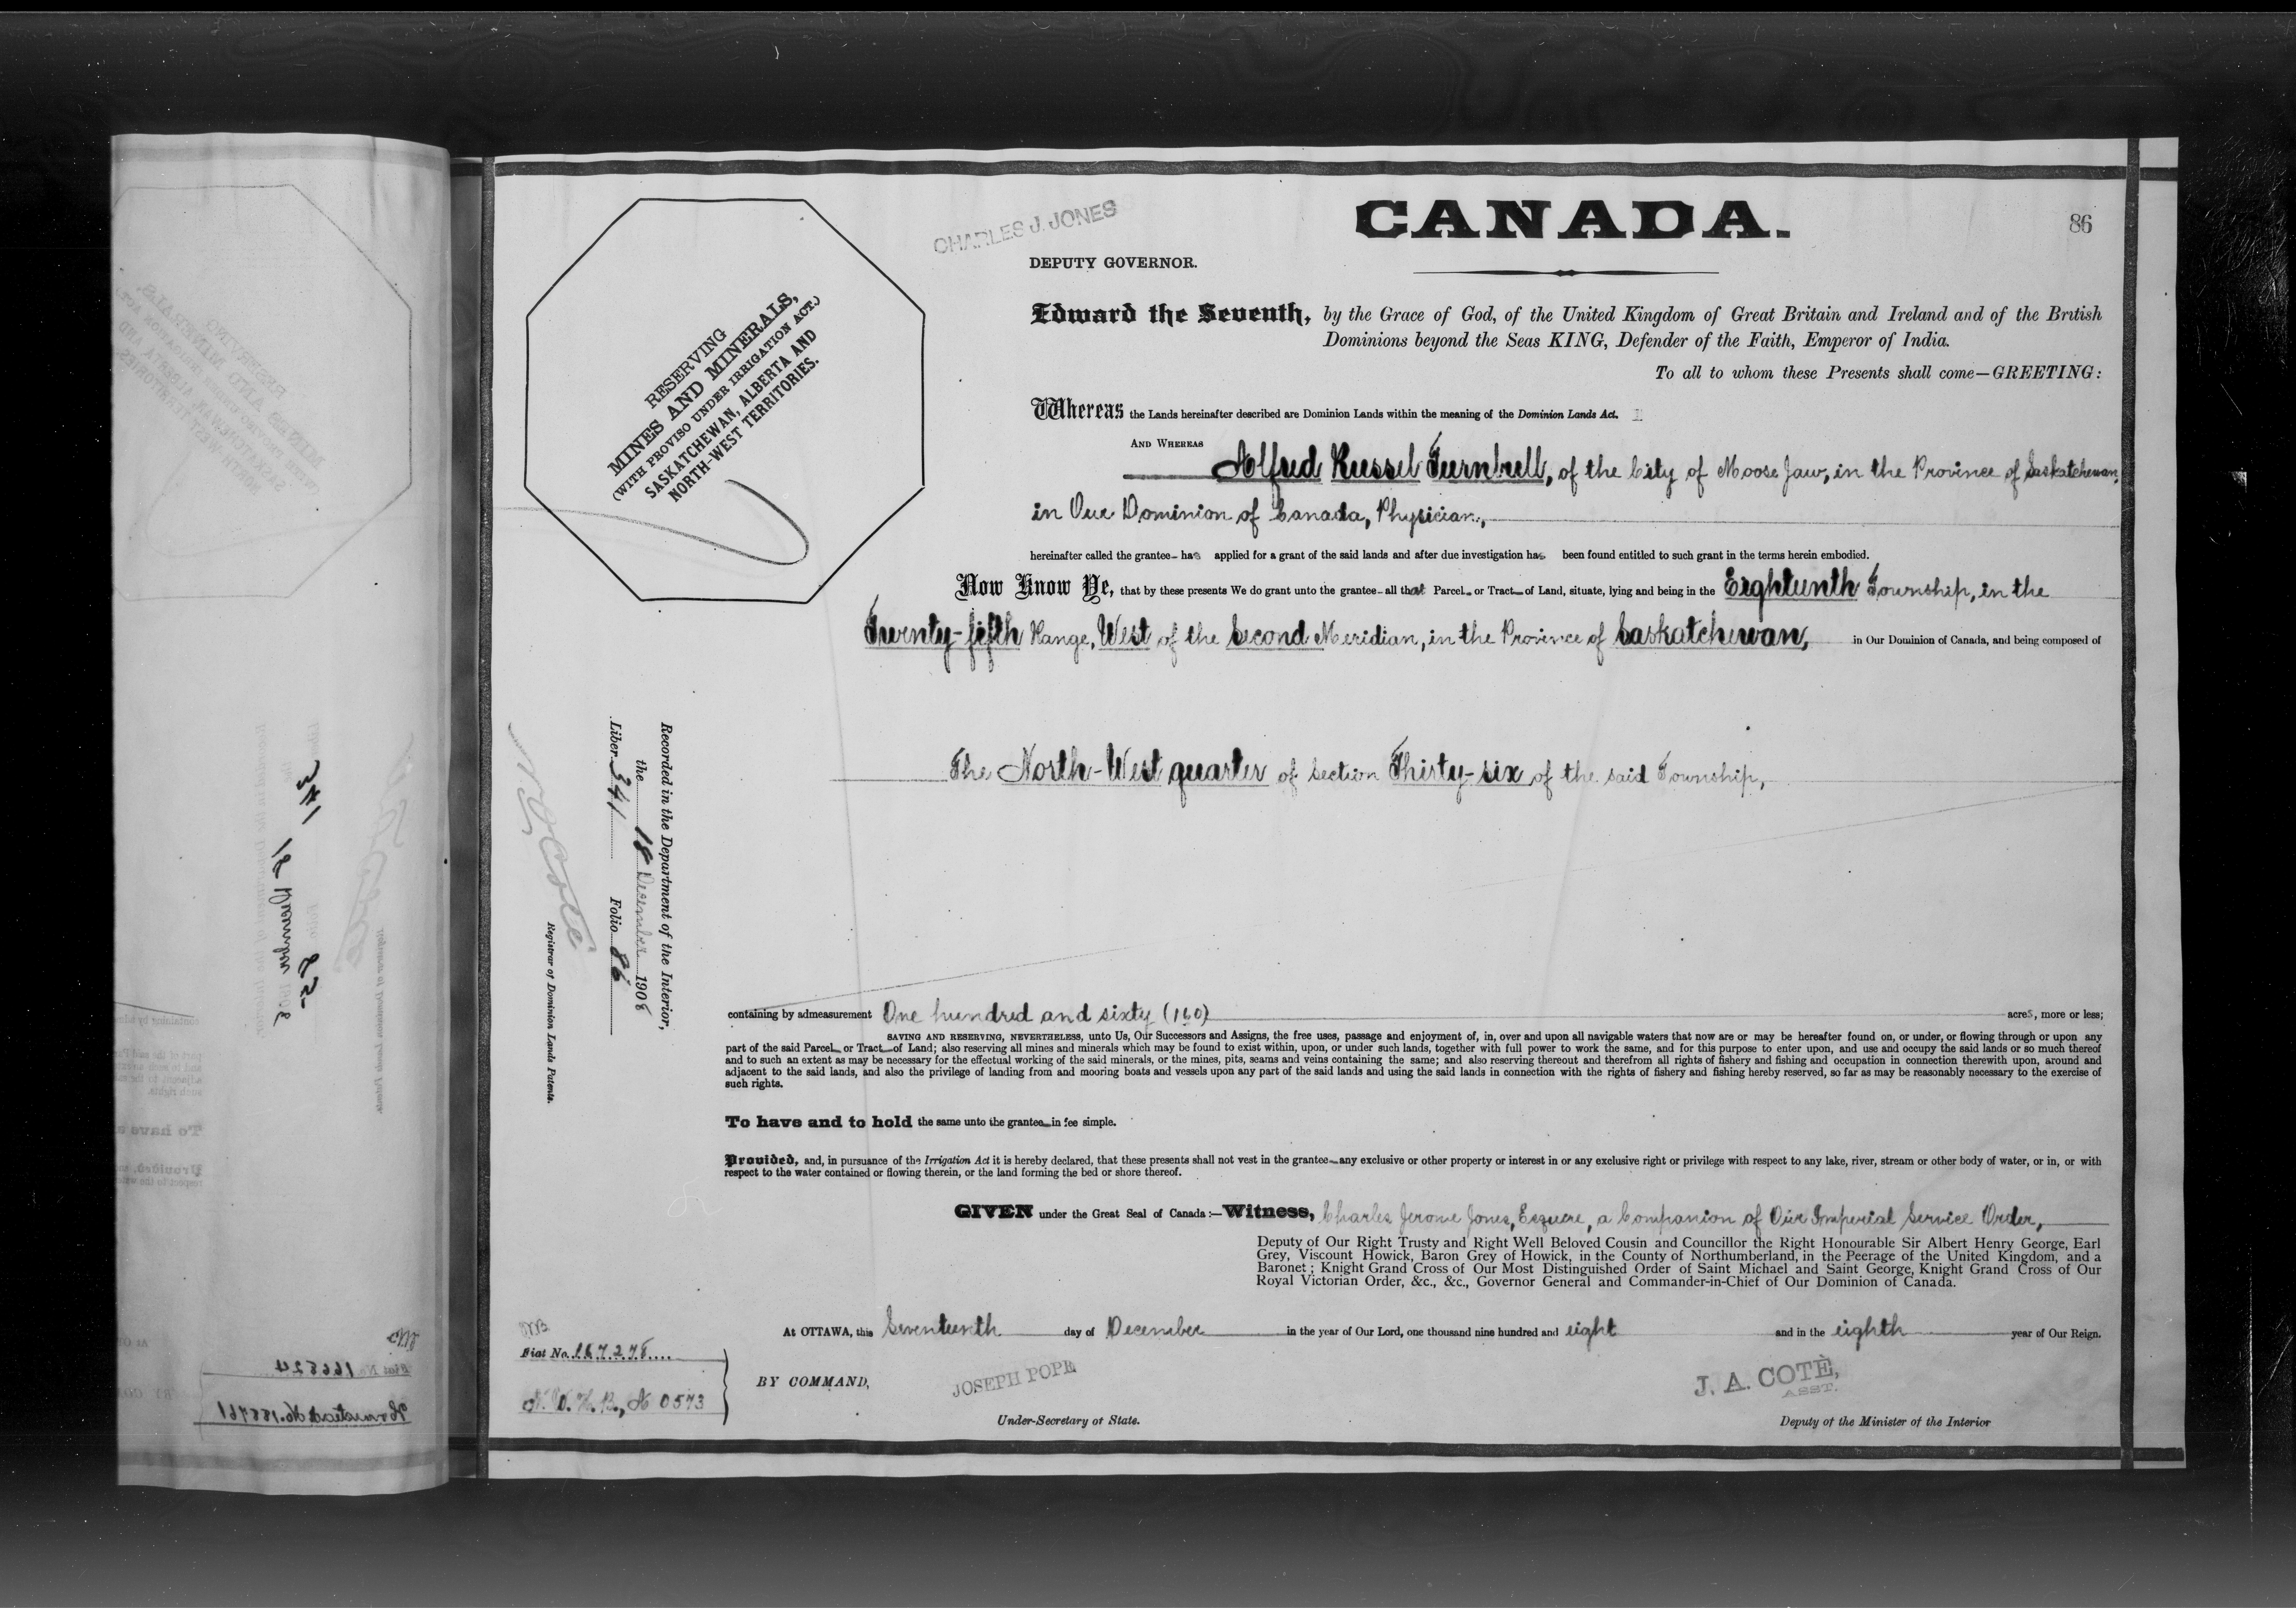 CHARLES J. JONES
CANADA.
86
DEPUTY GOVERNOR.
RESERVING
MINES AND MINERALS,
(WITH PROVISO UNDER IRRIGATION ACT.)
SASKATCHEWAN, ALBERTA AND
NORTH-WEST TERRITORIES.
Edward the Seventh, by the Grace of God, of the United Kingdom of Great Britain and Ireland and of the British
Dominions beyond the Seas KING, Defender of the Faith, Emperor of India.
To all to whom these Presents shall come—GREETING:
Whereas the Lands hereinafter described are Dominion Lands within the meaning of the Dominion Lands Act.
AND WHEREAS
Alfred Russel Turnbull, of the City of Moose Jaw, in the Province of Saskatchewan,
in Our Dominion of Canada, Physician,
hereinafter called the grantee has applied for a grant of the said lands and after due investigation has been found entitled to such grant in the terms herein embodied.
Now Know Ye, that by these presents We do grant unto the grantee all that Parcel or Tract of Land, situate, lying and being in the Eighteenth Township, in the
Twenty-fifth Range, West of the Second Meridian, in the Province of Saskatchewan, in Our Dominion of Canada, and being composed of
The North-West quarter of Section Thirty-six of the said Township,
Recorded in the Department of the Interior,
the 18 December 1908
Liber 341 Folio 86
Registrar of Dominion Lands Patents.
containing by admeasurement One hundred and sixty (160) acres, more or less;
SAVING AND RESERVING, NEVERTHELESS, unto Us, Our Successors and Assigns, the free uses, passage and enjoyment of, in, over and upon all navigable waters that now are or may be hereafter found on, or under, or flowing through or upon any
part of the said Parcel or Tract of Land; also reserving all mines and minerals which may be found to exist within, upon, or under such lands, together with full power to work the same, and for this purpose to enter upon, and use and occupy the said lands or so much thereof
and to such an extent as may be necessary for the effectual working of the said minerals, or the mines, pits, seams and veins containing the same; and also reserving thereout and therefrom all rights of fishery and fishing and occupation in connection therewith upon, around and
adjacent to the said lands, and also the privilege of landing from and mooring boats and vessels upon any part of the said lands and using the said lands in connection with the rights of fishery and fishing hereby reserved, so far as may be reasonably necessary to the exercise of
such rights.
To have and to hold the same unto the grantee in fee simple.
Provided, and, in pursuance of the Irrigation Act it is hereby declared, that these presents shall not vest in the grantee any exclusive or other property or interest in or any exclusive right or privilege with respect to any lake, river, stream or other body of water, or in, or with
respect to the water contained or flowing therein, or the land forming the bed or shore thereof.
GIVEN under the Great Seal of Canada:—Witness, Charles Jerome Jones, Esquire, a Companion of Our Imperial Service Order,
Deputy of Our Right Trusty and Right Well Beloved Cousin and Councillor the Right Honourable Sir Albert Henry George, Earl
Grey, Viscount Howick, Baron Grey of Howick, in the County of Northumberland, in the Peerage of the United Kingdom, and a
Baronet; Knight Grand Cross of Our Most Distinguished Order of Saint Michael and Saint George, Knight Grand Cross of Our
Royal Victorian Order, &c., &c., Governor General and Commander-in-Chief of Our Dominion of Canada.
At OTTAWA, this Seventeenth day of December in the year of Our Lord, one thousand nine hundred and eight and in the eighth year of Our Reign.
Fiat No. 167278
BY COMMAND,
JOSEPH POPE
J. A. COTÈ,
ASST.
0573
Under-Secretary of State.
Deputy of the Minister of the Interior